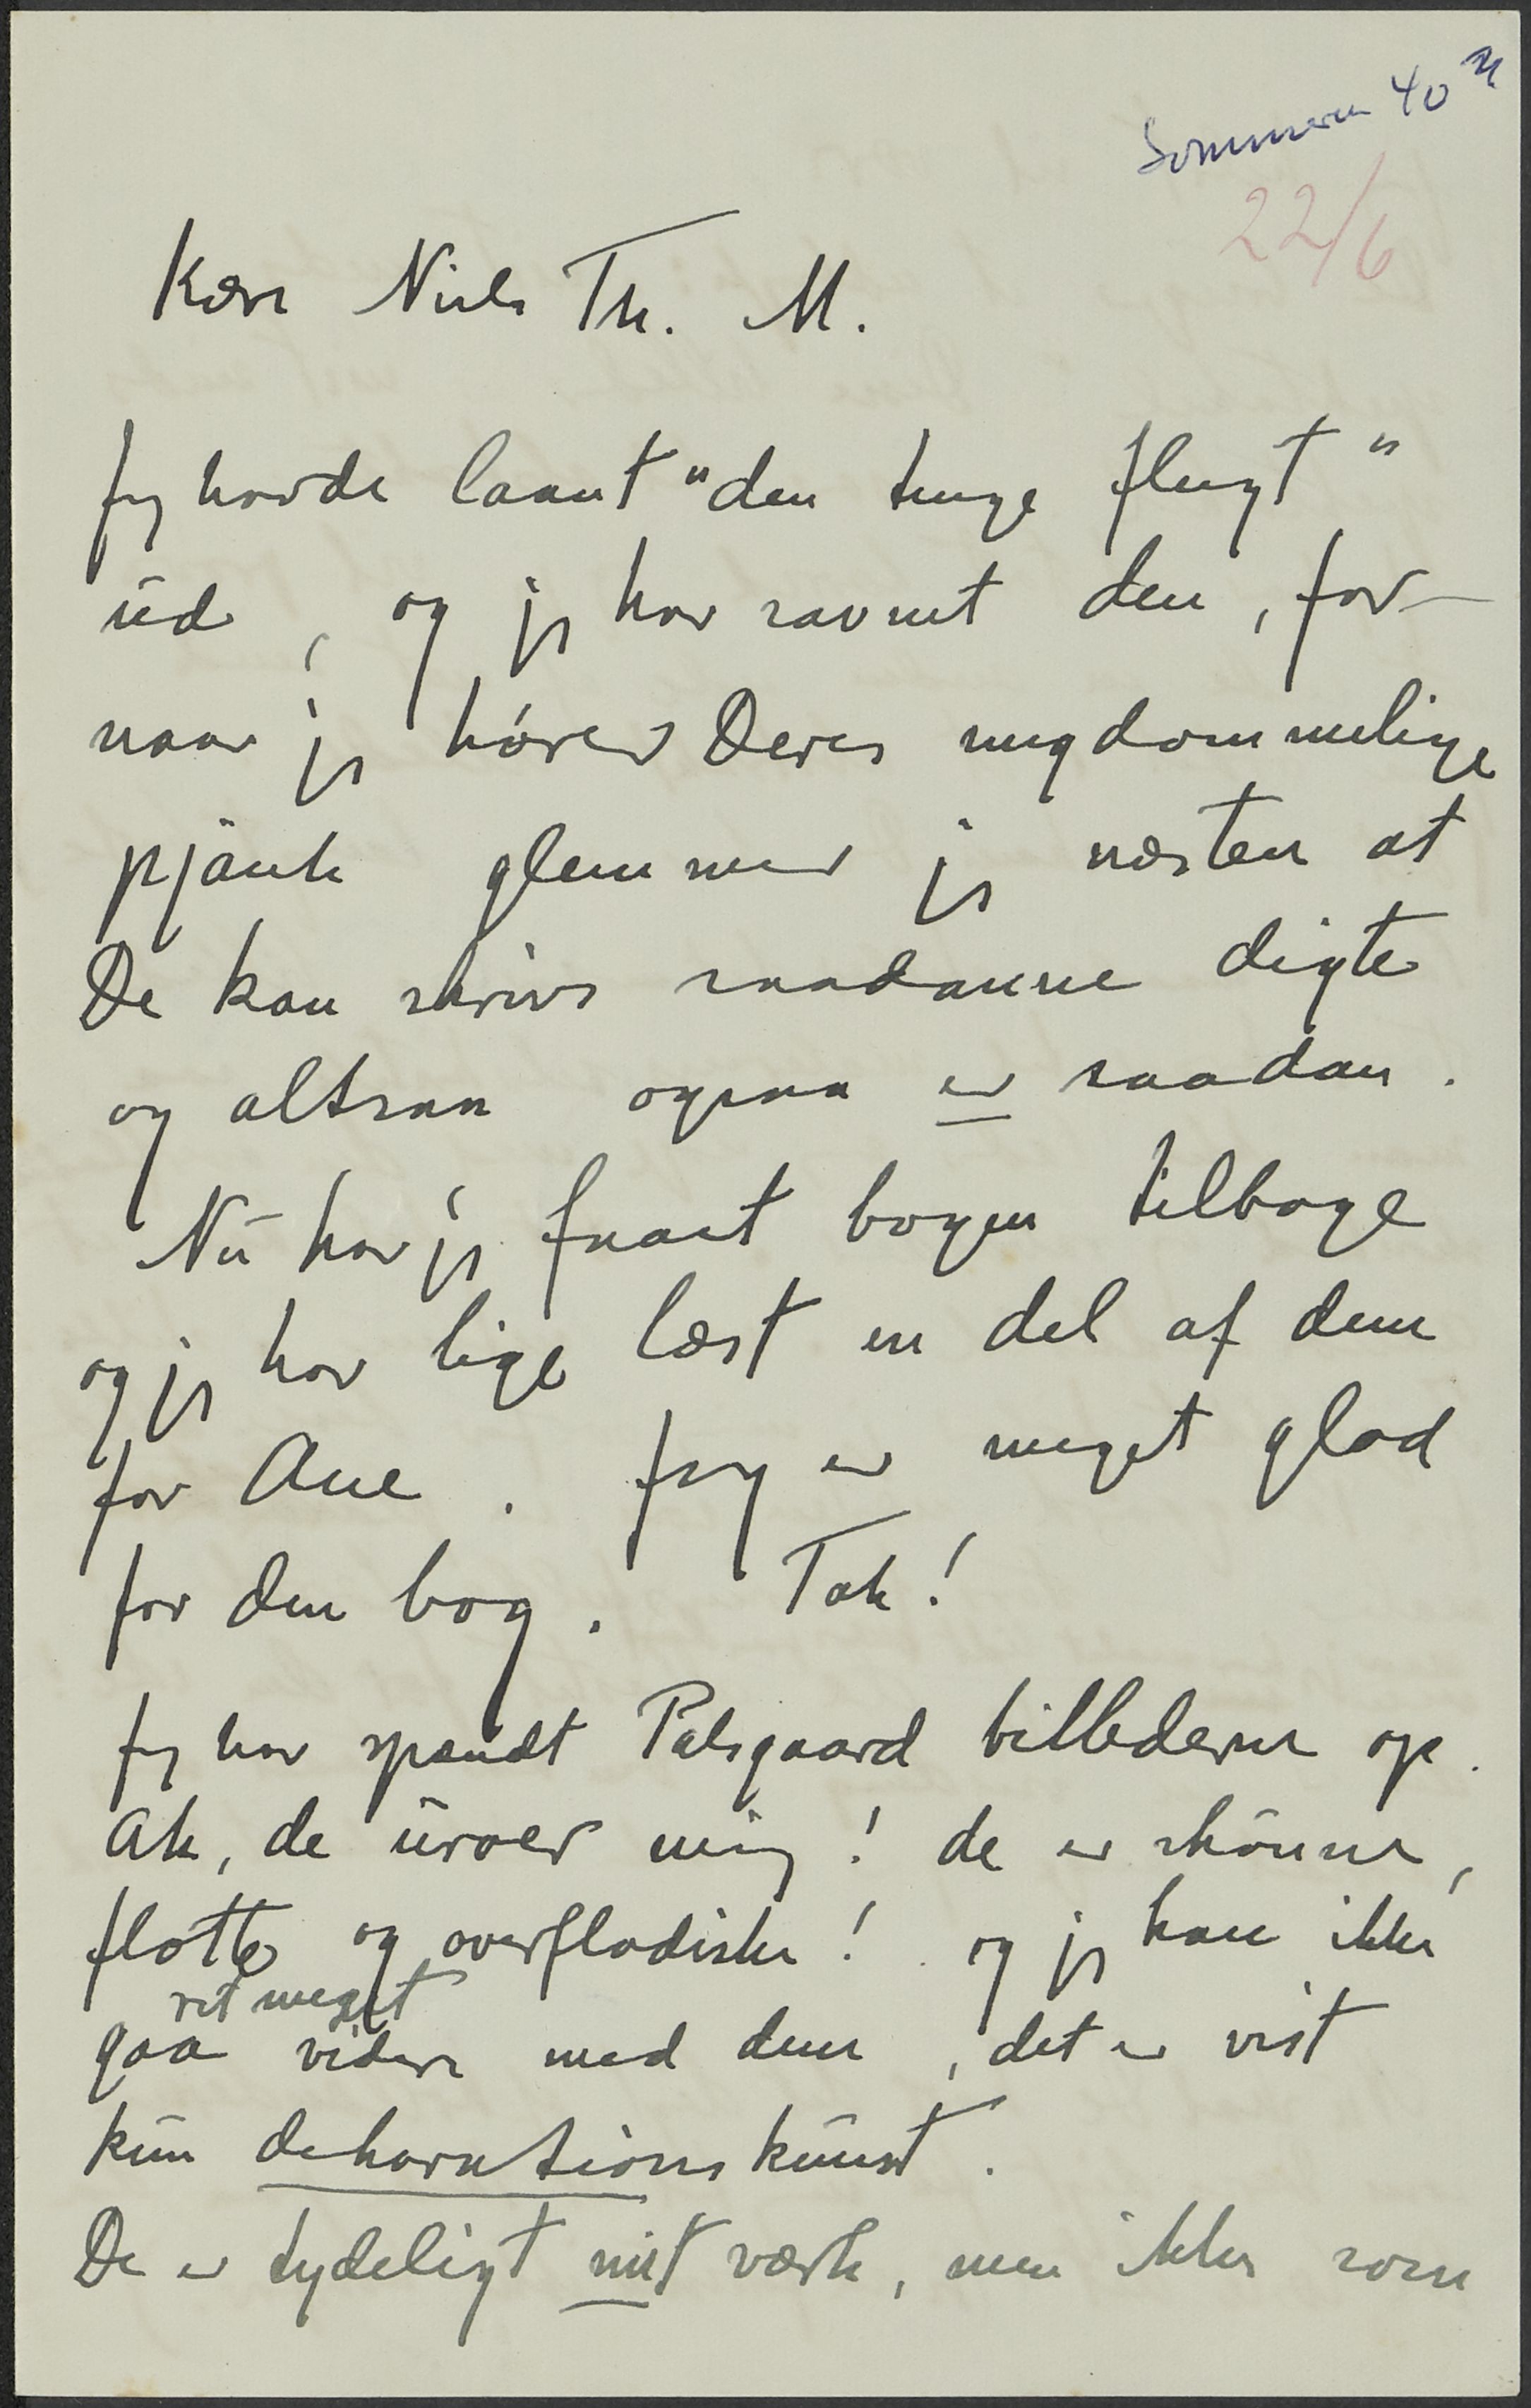 Sommeren 40
22/6
Kære Niels Th. M.
Jeg havde laant "den tunge flugt"
ud, og jeg har savnet den, for
naar jeg hører Deres ungdommelige
pjank glemmer jeg næsten at
De kan skrive saadanne digte
og altsaa ogsaa er saadan.
Nu har jeg faaet bogen tilbage
og jeg har lige læst en del af dem
for Ane. Jeg er meget glad
for den bog. Tak!
Jeg har spændt Palsgaard billederne op.
Ak, de uroer mig! de er skønne,
flotte og overflodiske! og jeg kan ikke
ret meget
gaa videre med dem, det er vist
kun dekorationskunst.
De er tydeligt mit værk, men ikke som